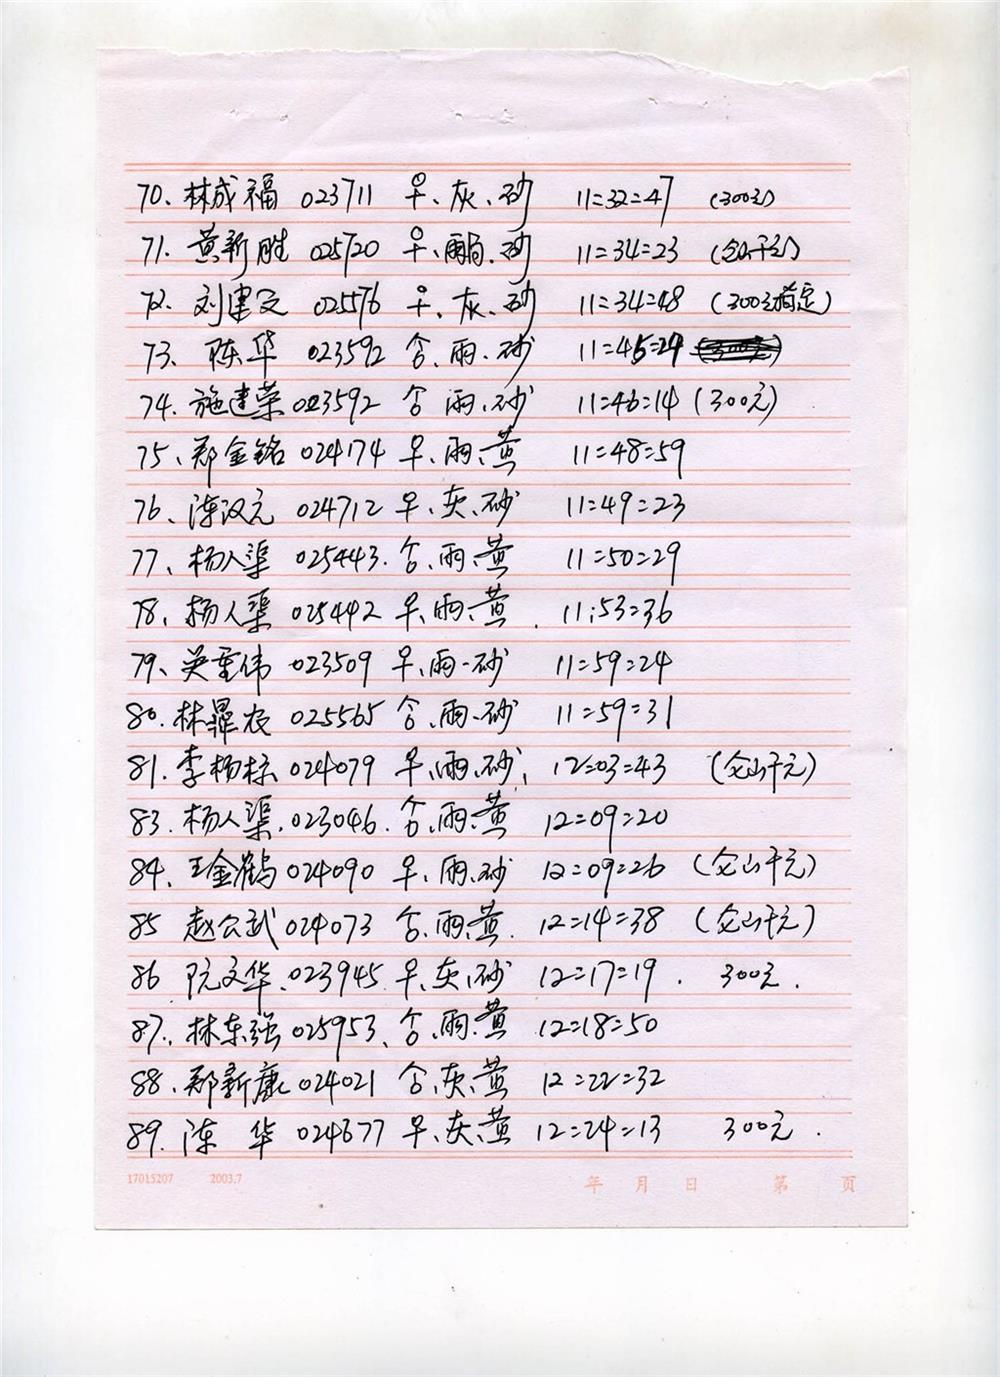 70、林成福 023711 ♀、灰、砂 11=32=47 (300元)
71、黄新胜 025720 ♀、雨、砂 11=34=23 (仑山千元)
72、刘建文 025576 ♀、灰、砂 11=34=48 (300元指定)
73、陈华 023592 合、雨、砂 11=45=24
74、施建荣 023592 合 雨、砂 11=46=14 (300元)
75、郑金铭 024174 ♀、雨、黄 11=48=59
76、陈汉元 024712 ♀、灰、砂 11=49=23
77、杨人渠 025443. 合、雨、黄 11=50=29
78、杨人渠 025442 ♀、雨、黄. 11:53=36
79、吴重伟 023509 ♀、雨-砂 11=59=24
80.林 农 025565 合、雨、砂 11=59=31
81.李杨标 024079 ♀、雨、砂、 12=03=43 (仑山千元)
83.杨人渠.023046.合、雨、黄 12=09=20
84、王金鹤 024090 ♀、雨、砂 12=09=26 (仑山千元)
85 赵公武 024073 合、雨、黄. 12=14=38 (仑山千元)
86 阮文华、023945 ♀、灰、砂 12=17=19. 300元.
87、林东强 025953、合、雨、黄 12=18=50
88、郑新康 024021 合、灰、黄 12=22=32
89.陈 华 024677 ♀、灰、黄 12=24=13 300元.
17015207 2003.7 年 月 日 第 页